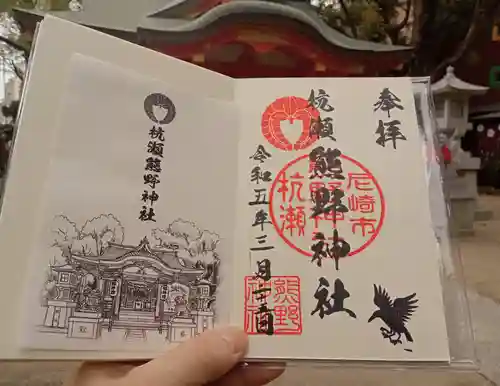 奉拝
杭瀬熊野神社
尼崎市
熊野神
杭瀬
令和五年三月一日
杭瀬熊野神社